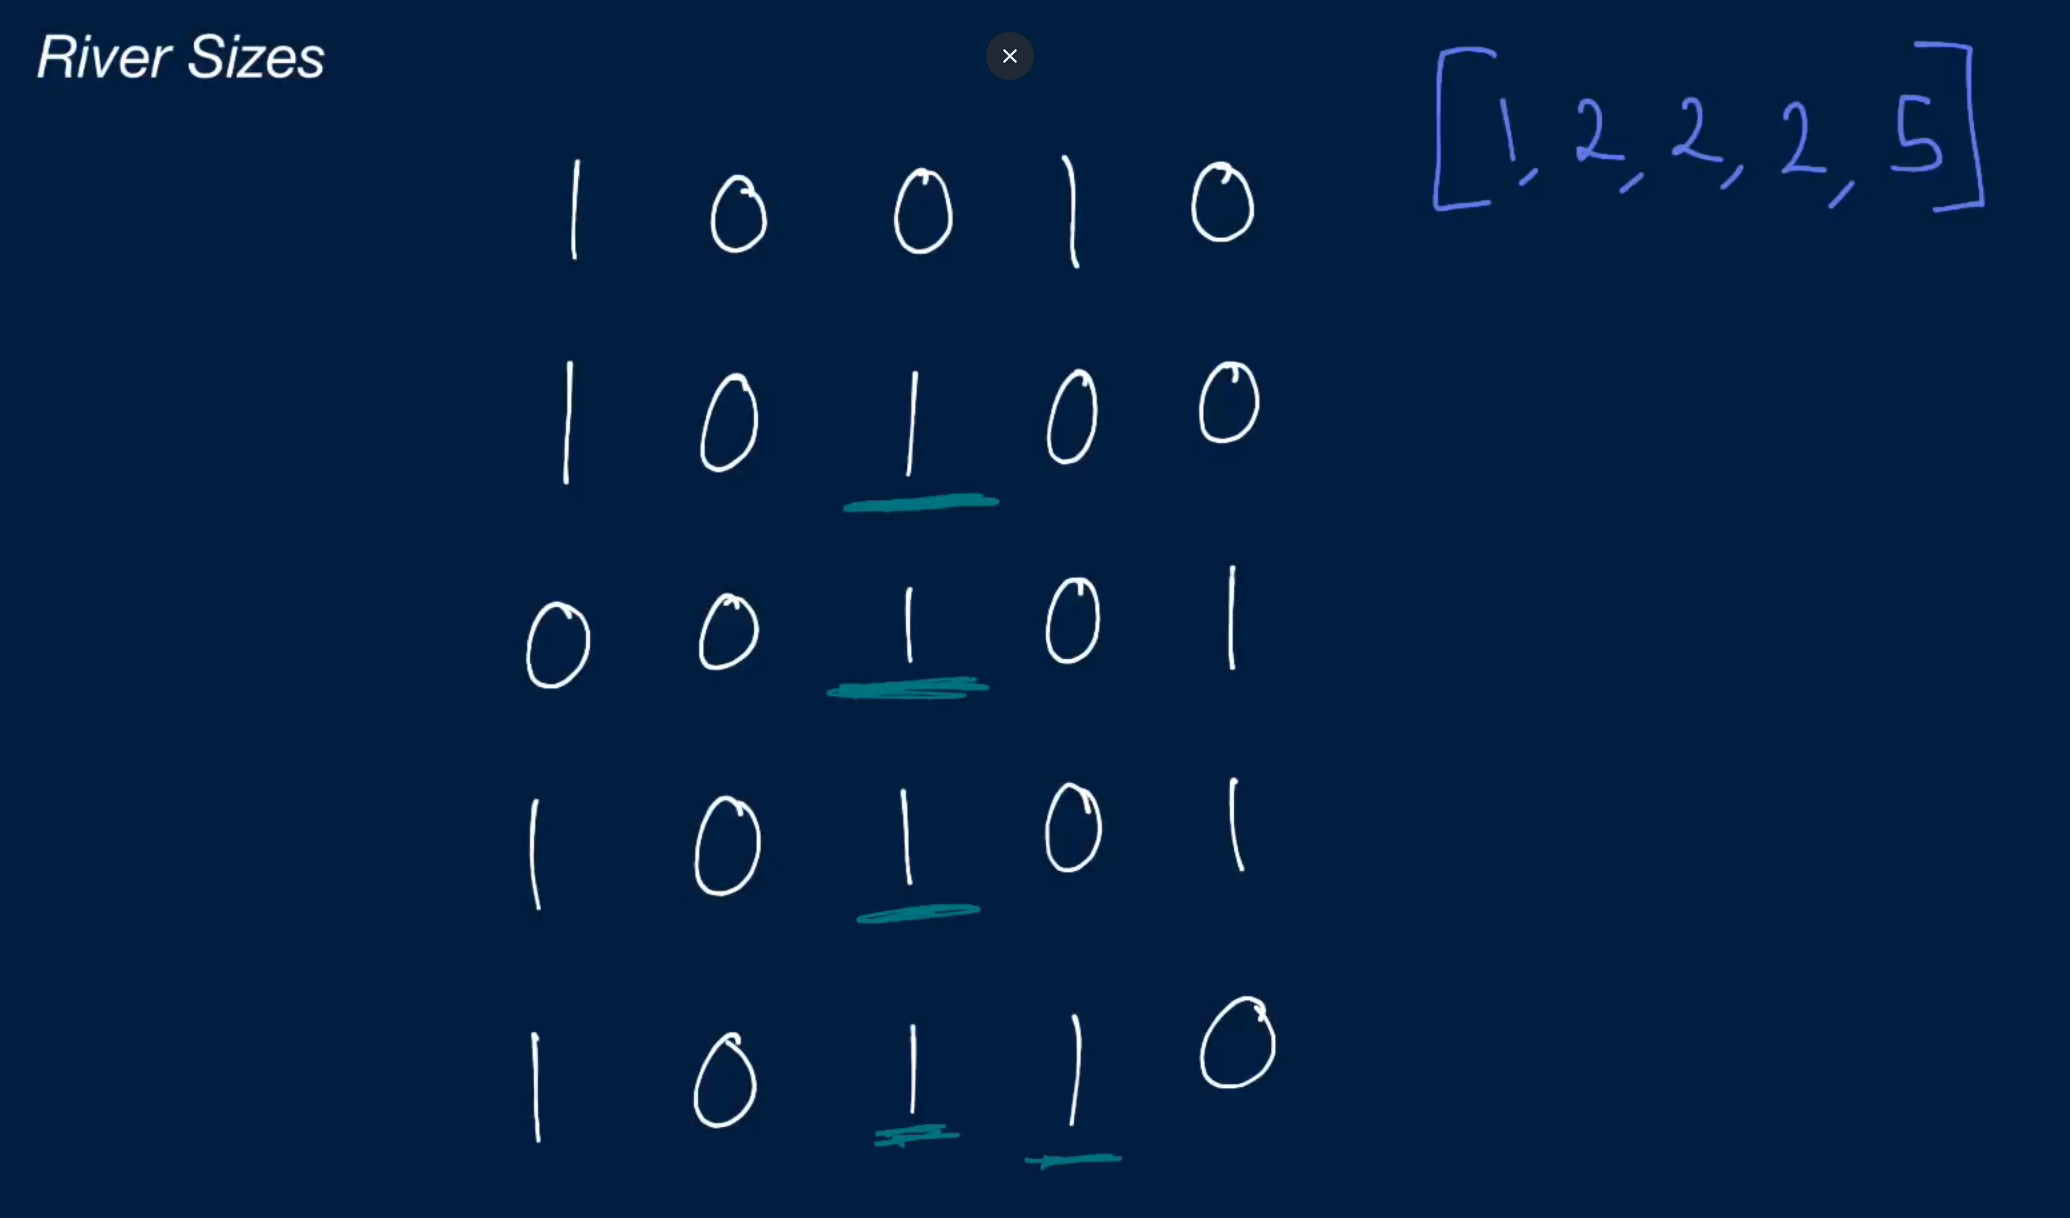 River Sizes
[1, 2, 2, 2, 5]
1 0 0 1 0
1 0 1 0 0
0 0 1 0 1
1 0 1 0 1
1 0 1 1 0